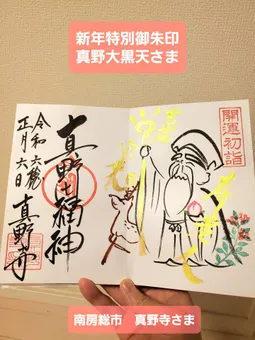 新年特別御朱印
真野大黒天さま
開運初詣
真野七福神
令和六歳
正月六日
真野寺
南房総市 真野寺さま